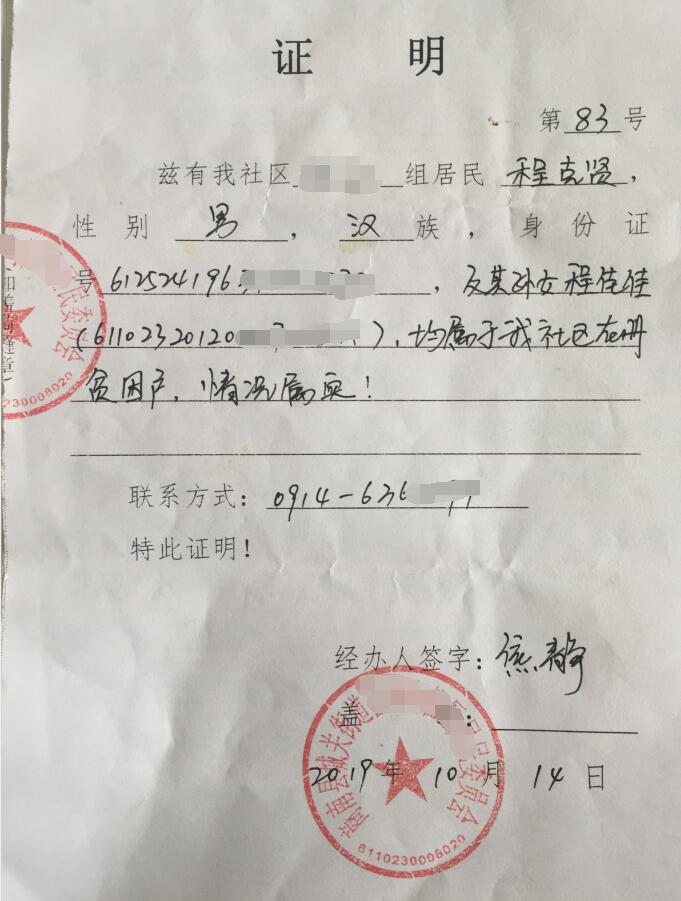 证 明
第 83 号
兹有我社区 组居民 程克贤，
性别 男 ，汉 族，身份证
号 612524196 ，及其孙女程佳佳
(61102320120 )，均属于我社区在册
贫困户，情况属实！
联系方式：0914-636
特此证明！
经办人签字：焦静
盖 ：
2019 年 10 月 14 日
商南县城关街道 居民委员会
6110230008020
民委员会
230008020